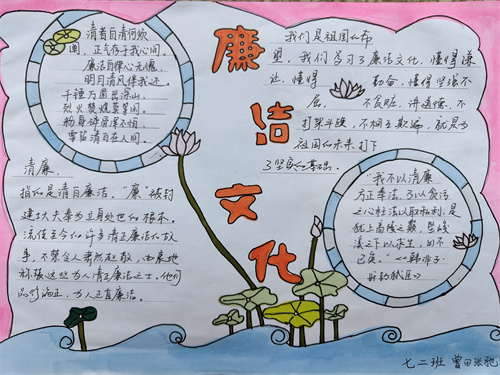 清者自清何须
圆，正气存于我心间。
廉洁自律心无愧，
明月清风伴我还。
千锤万凿出深山，
烈火焚烧若等闲。
粉身碎骨浑不怕，
要留清白在人间。
廉洁文化
我们是祖国的花
朵，我们学习了廉洁文化，懂得谦
让，懂得 勤奋，懂得坚强不
屈， 不贪赃，讲道德，不
打架斗殴，不相互欺骗，就是为
祖国的未来打下
了坚实的基础。
清廉，
指的是清白廉洁。“廉”被封
建士大夫奉为立身处世的根本。
流传至今的许多清正廉洁的故
手，不禁令人肃然起敬，
称张这些为人清正廉洁之士。他们
品行端正，为人正直廉洁。
“我不以清廉
方正奉法，乃以贪污
之心枉法以取私利，是
犹上高陵之颠，堕峻
溪之下以求生，必不
几矣。”《韩非子·
奸劫弑臣》
七二班 曾田张驰